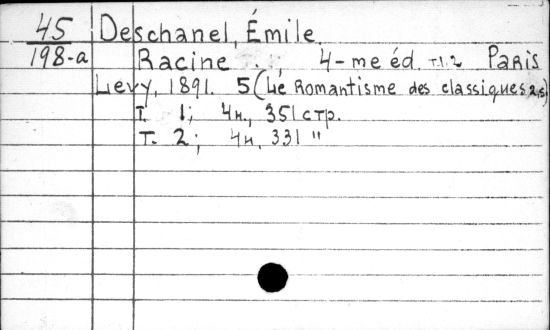 45 Deschanel, Émile
198-a Racine . . ; 4-me éd. т.1.2 Paris
Levy, 1891. 5 (Le Romantisme des classiques 2,5)
T. 1; 4н., 351 стр.
T. 2; 4н, 331 "